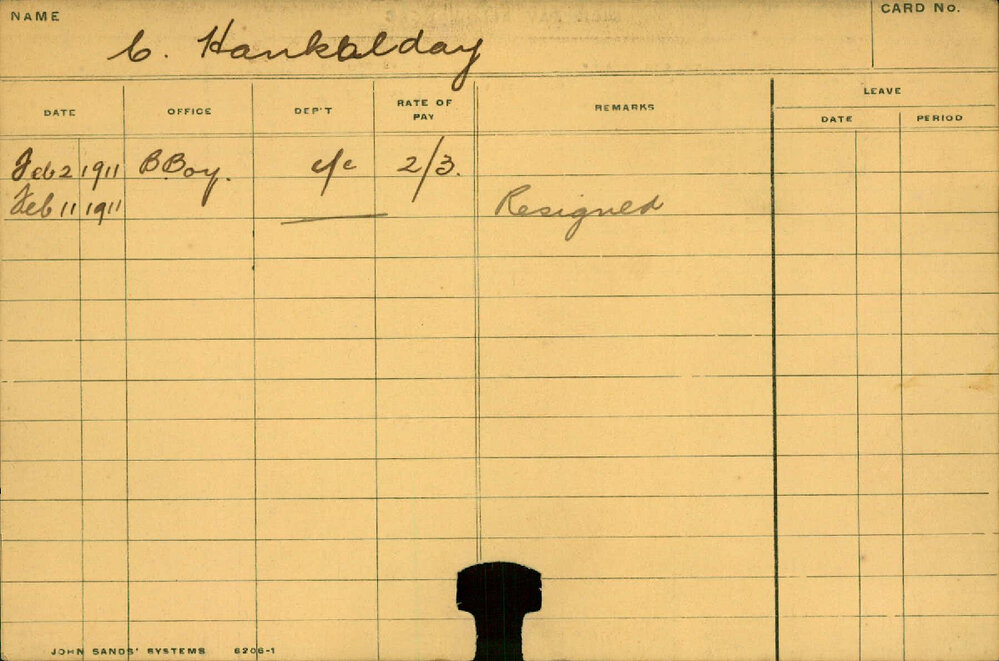 NAME
CARD No.
C. Hankalday
DATE OFFICE DEP'T RATE OF PAY REMARKS LEAVE
DATE PERIOD
Feb 2 1911 B Boy. c/c 2/3.
Feb 11 1911 Resigned
JOHN SANDS' SYSTEMS 6206-1